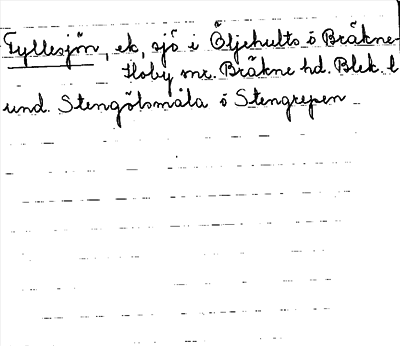 Fyllesjön, ek, sjö i Öljehults o Bräkne-
Hoby snr. Bräkne hd. Blek. l
und. Stengölsmåla o Stengrepen